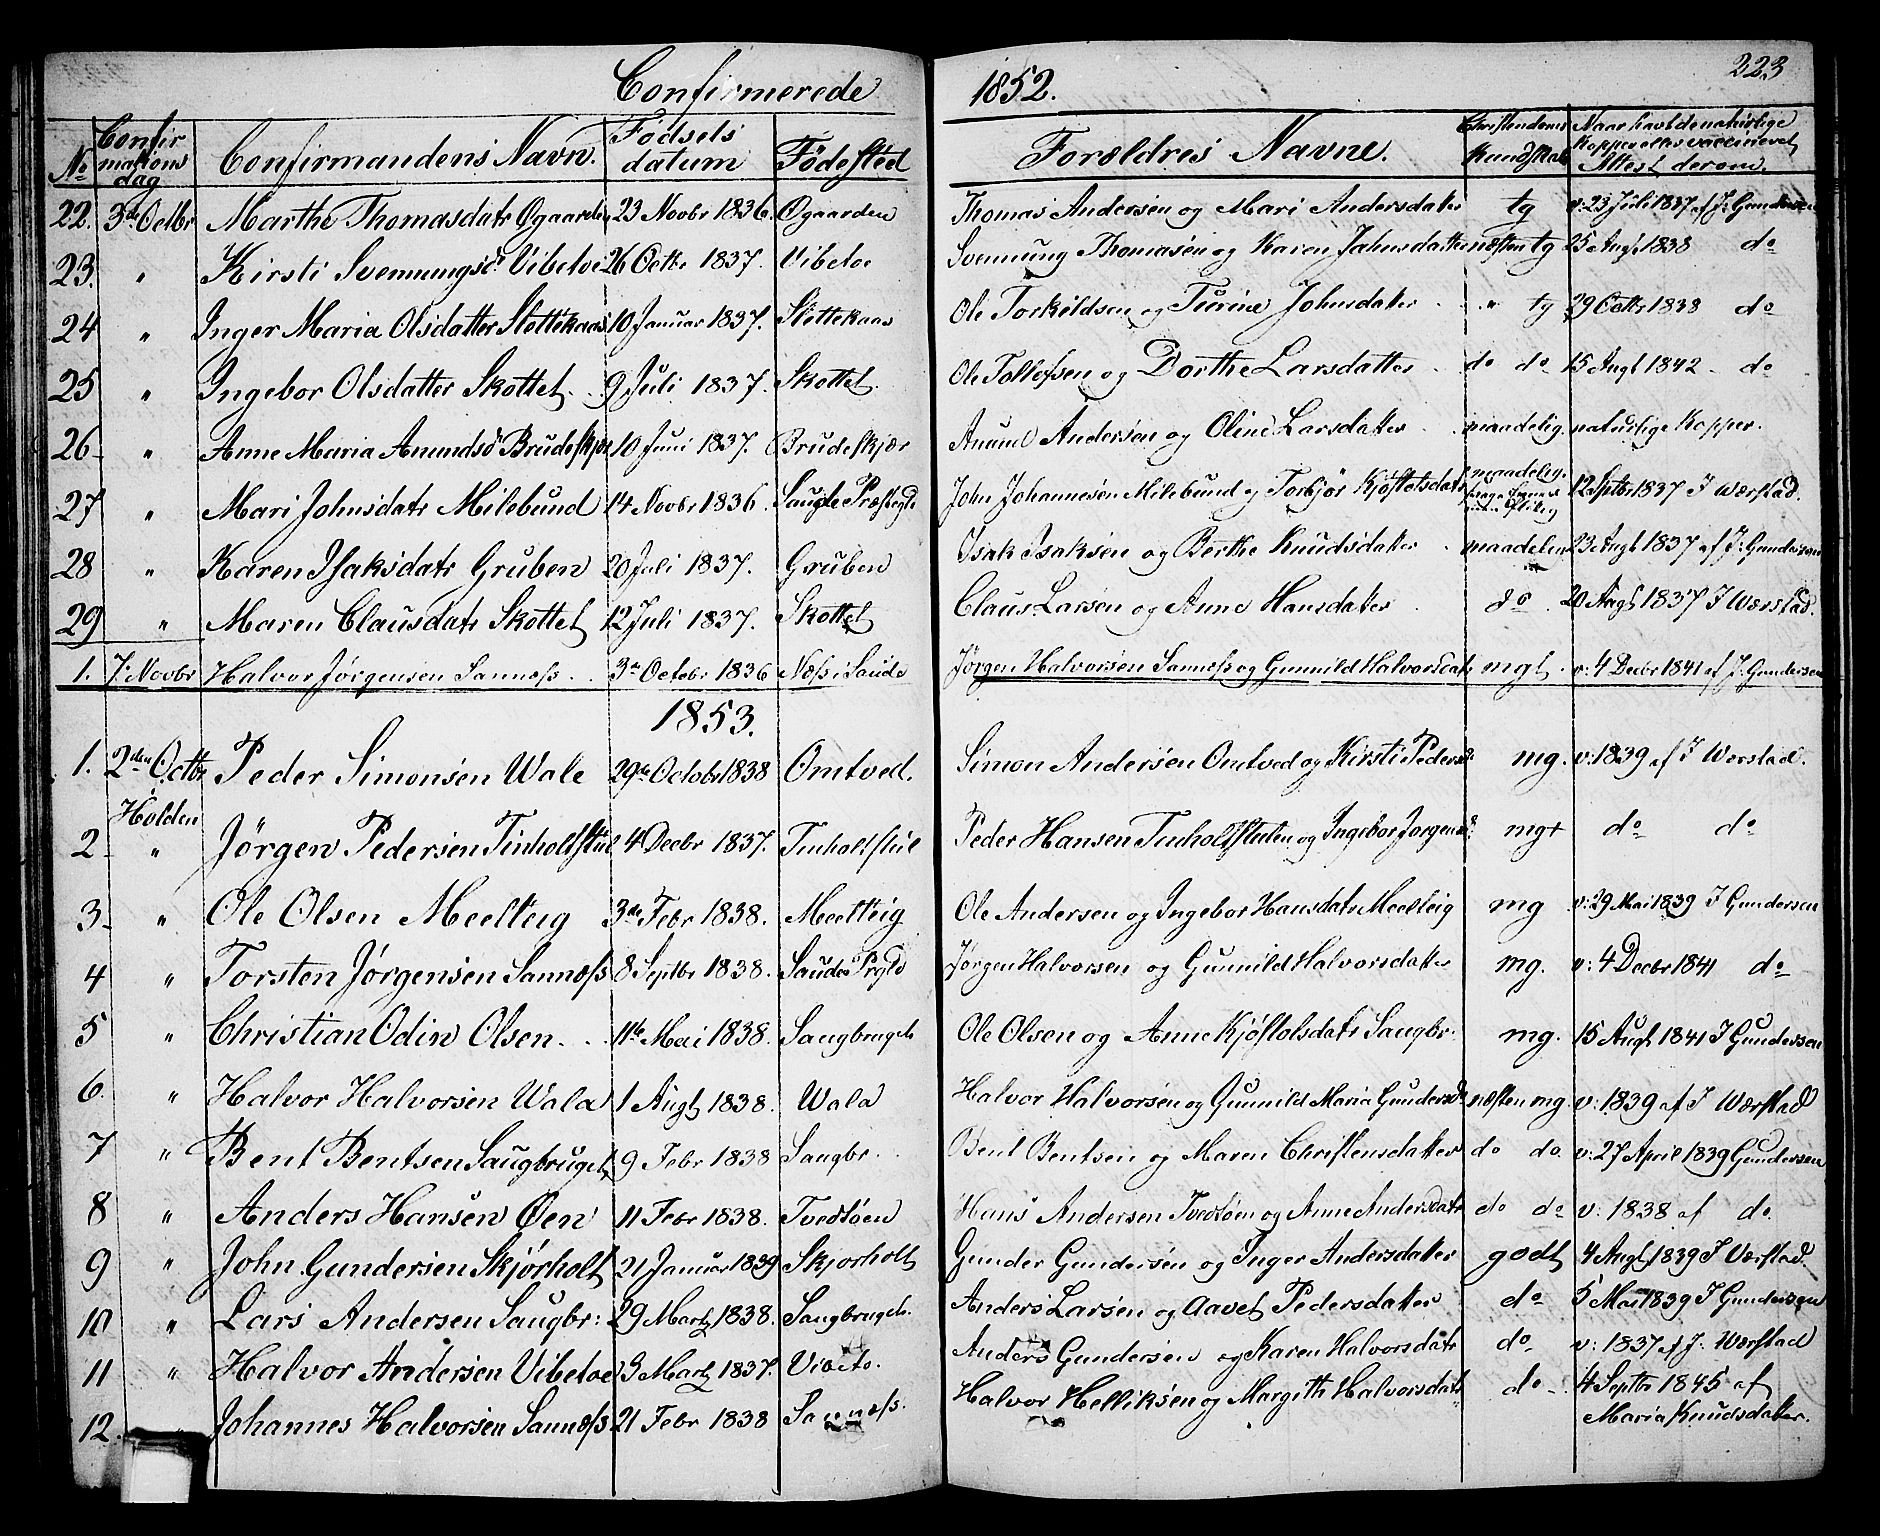 Confirmerede 1852. 223
No Confirmations dag Confirmandens Navn. Fødsels datum Fødested Forældres Navne. Christendoms Kundskab Naar havt de naturlige Kopper eller vaccineret Attest derom.
22. 3de Octbr Marthe Thomasdatr Øgaarden 23 Novbr 1836. Øgaarden Thomas Andersen og Mari Andersdatter tg v: 23 Juli 1837 af J. Gundersen
23. " Kirsti Svennungsd. Vibetoe 26 Octbr 1837. Vibetoe Svennung Thomasen og Karen Jahnsdatter næsten tg 25 Augt 1838 do
24 " Inger Maria Olsdatter Slettekaas 10 Januar 1837. Slettekaas Ole Torkildsen og Turine Johnsdatter " tg 29 Octbr 1838 do
25 " Ingebor Olsdatter Skottet 9 Juli 1837. Skottet. Ole Tollefsen og Dorthe Larsdatter do do 15 Augt 1842 do
26 " Anne Maria Amundsd Brudeskjær 10 Juni 1837. Brudeskjær Anund Andersen og Oline Larsdatter maadelig. naturlige Kopper.
27 " Mari Johnsdatr Milebund 14 Novbr 1836. Saude Præstegld John Johannesen Milebund og Torbjør Kjøstolsdatr maadelig. 12 Septbr 1837 J Wærstad.
28 " Karen Isaksdatr Gruben 20 Juli 1837. Gruben Isak Isaksen og Berthe Knudsdatter maadelig 23 Augt 1837 af J: Gundersen
29 " Maren Clausdatr Skottet 12 Juli 1837. Skottet Claus Larsen og Anne Hansdatter do 20 Augt 1837 J Wærstad.
1. 7. Novbr Halvor Jørgensen Sannæss 3de Octobr 1836 Næss i Saude Jørgen Halvorsen Sannæss og Gunnild Halvorsdatr mgt. v: 4 Decbr 1841 af J. Gundersen
1853.
1. 2den Octbr Peder Simonsen Wale 29de Octobr 1838 Omtved. Simon Andersen Omtved og Kirsti Pedersd: mg. v: 1839 af J Wærstad.
Holden
2 " Jørgen Pedersen Tinholtstul 4 Decbr 1837. Tinholtstul Peder Hansen Tinholtstulen og Ingebor Jørgensd: mgt do do
3 " Ole Olsen Meelteig 3de Febr 1838. Meelteig Ole Andersen og Ingebor Hansdatr Meelteig mg v: 29 Mai 1839 J Gundersen
4 " Torsten Jørgensen Sannæss 8 Septbr 1838. Saude Prgld Jørgen Halvorsen og Gunnild Halvorsdatter mg. v: 4 Decbr 1841 do
5 " Christian Odin Olsen 11te Mai 1838. Saugbruget Ole Olsen og Anne Kjøstolsdatr Saugbr: mg. 15 Augt 1841 J Gundersen
6. " Halvor Halvorsen Wala 1 Augt 1838. Wala Halvor Halvorsen og Gunnild Maria Gundersd næsten mg. v: 1839 af J Wærstad
7 " Bent Bentsen Saugbruget 9 Febr 1838 Saugbr. Bent Bentsen og Maren Christensdatter do do. v: 27 April 1839 Gundersen
8 " Anders Hansen Øen 11 Febr 1838. Tvedtøen Hans Andersen Tvedtøen og Anne Andersdatr do do v: 1838 af do.
9 " John Gundersen Skjørholt 21 Januar 1839 Skjørholt Gunder Gundersen og Inger Andersdatter godt 4 Augt 1839 J Værstad.
10 " Lars Andersen Saugbr: 29 Martz 1838. Saugbruget. Anders Larsen og Aavet Pedersdatter do 5 Mai 1839 J Gundersen
11 " Halvor Andersen Vibetoe 3 Martz 1837. Anders Gundersen og Karen Halvorsdatr do. v: 1837 af J: Wærstad
12 " Johannes Halvorsen Sannæss 21 Febr 1838 Sannæss. Halvor Helliksen og Margith Halvorsdatr do 4 Septbr 1845 af
Maria Knudsdatter.